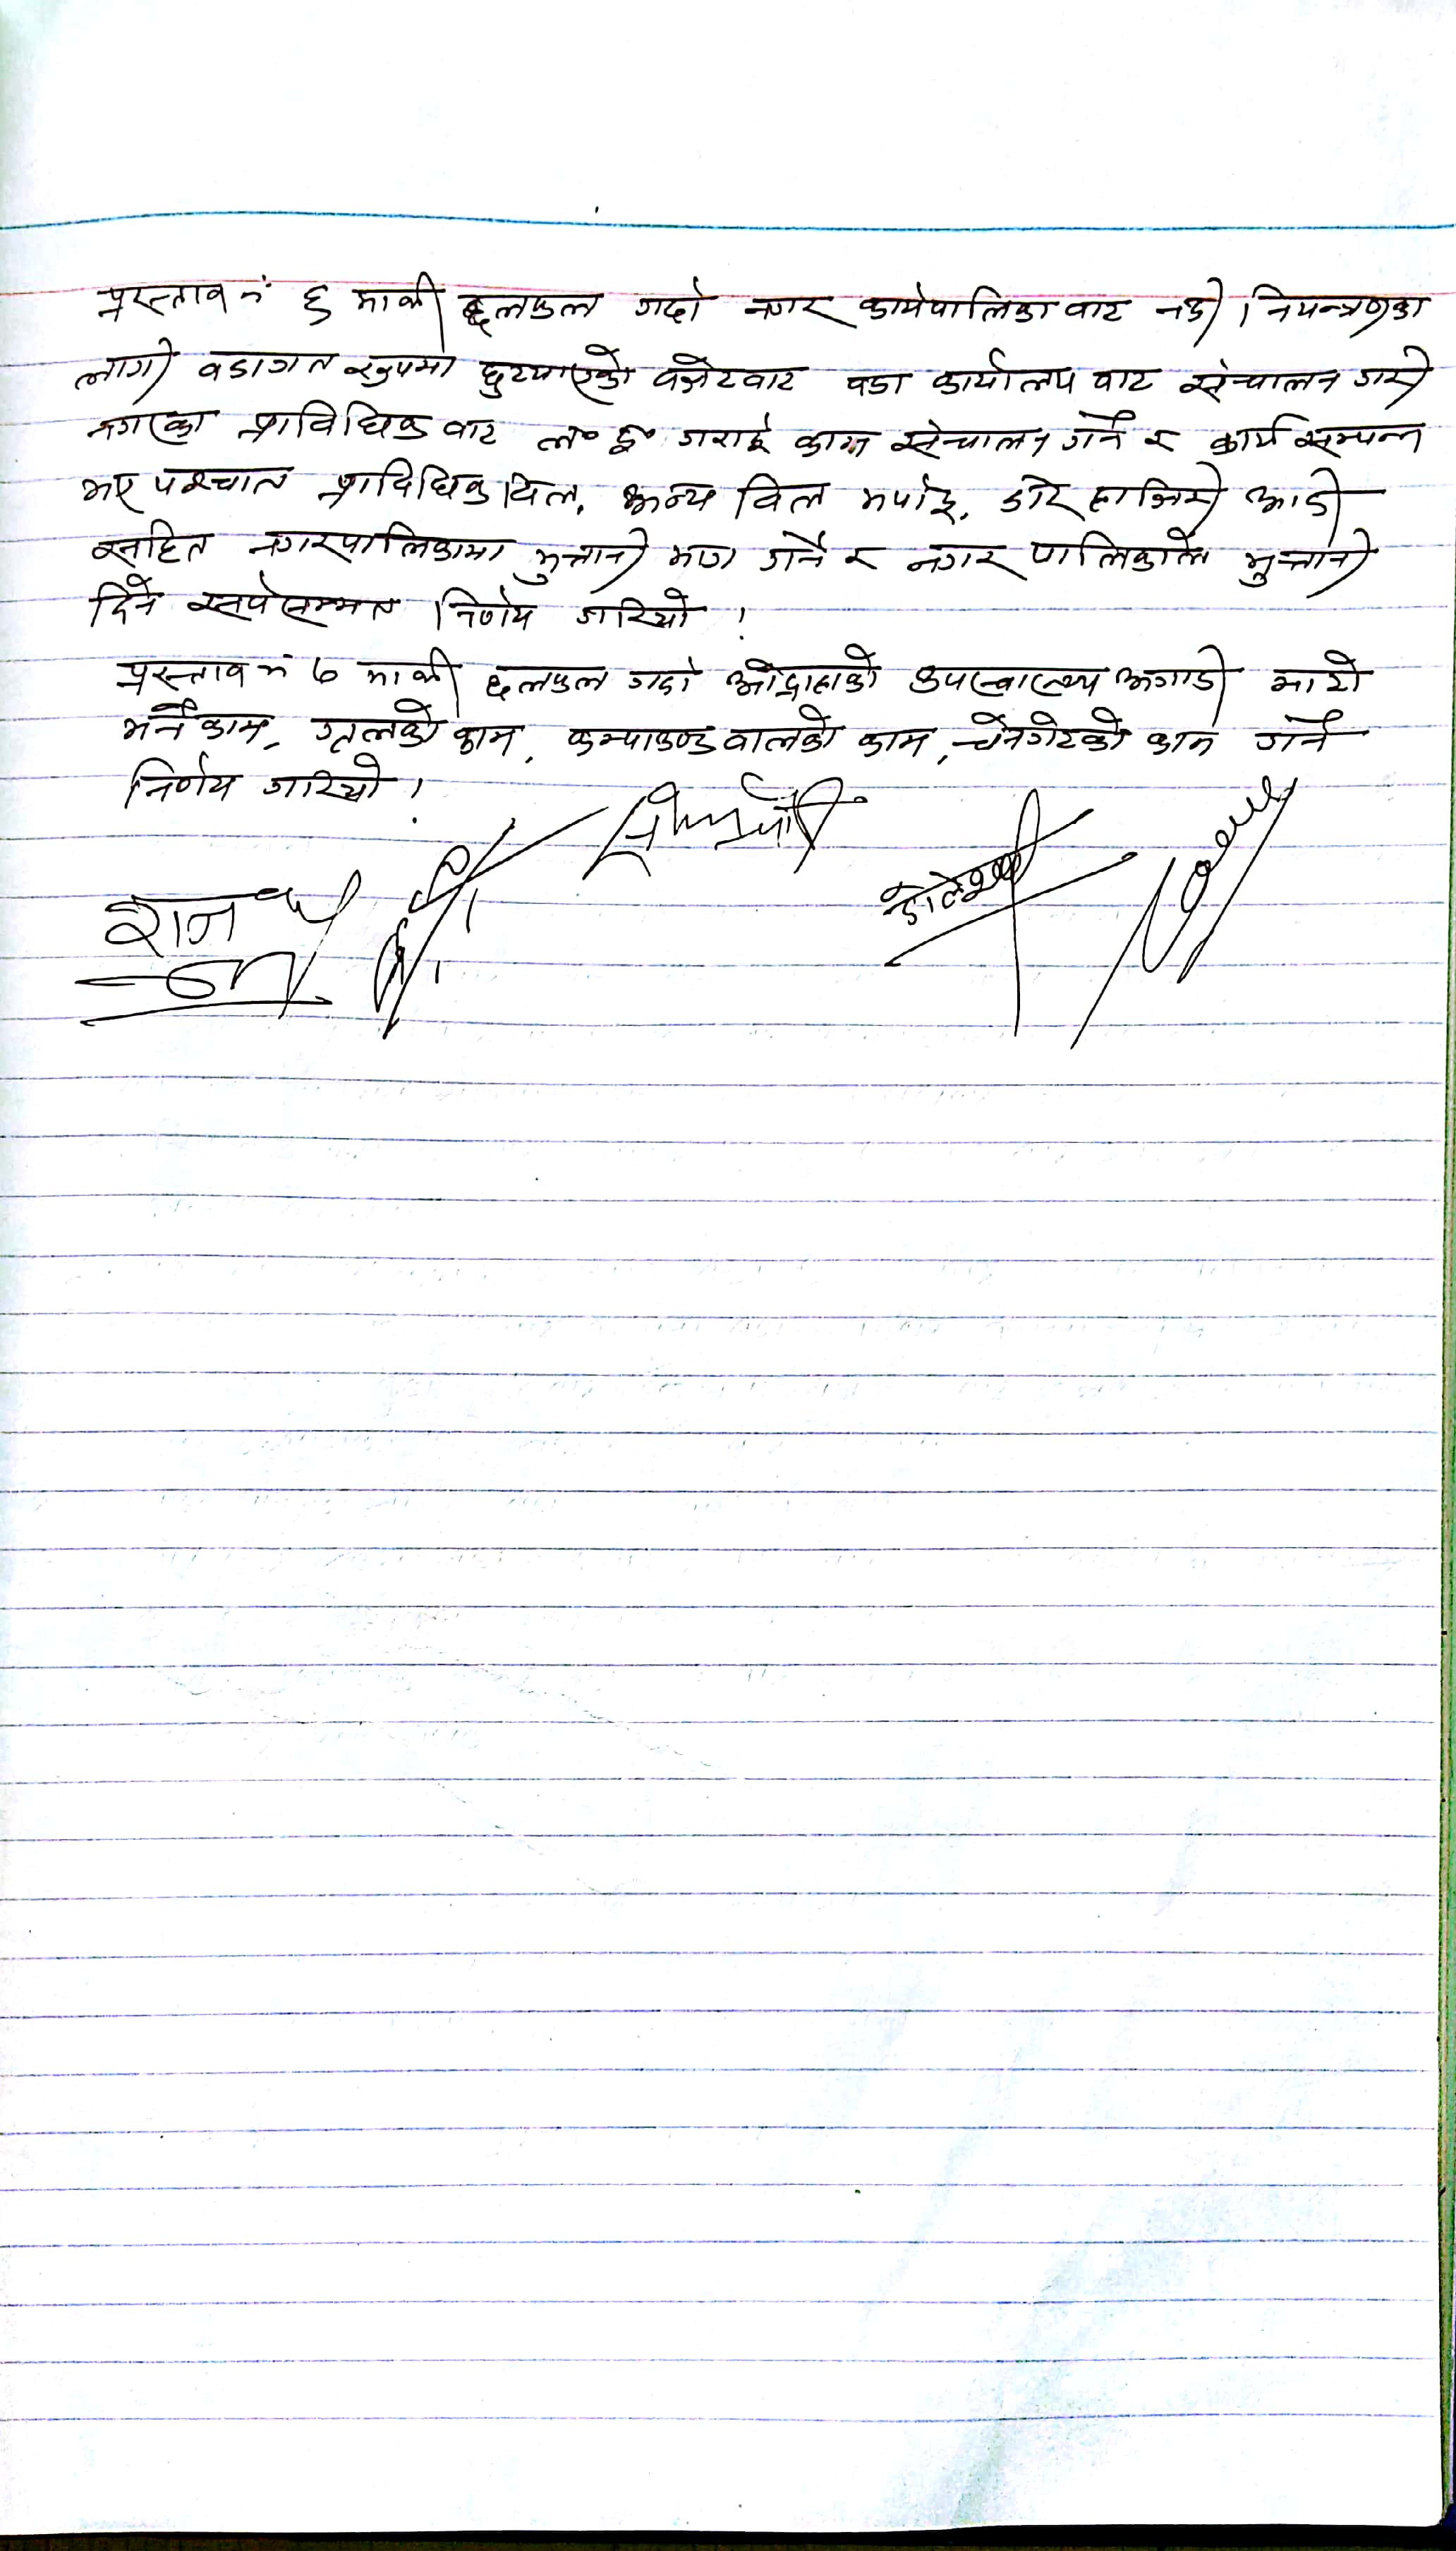 प्रस्ताव नं ६ माथी छलफल गर्दा नगर कार्यपालिका वाट नदी नियन्त्रणका
लागी वडागत रुपमा छुटयाएको वजेटवाट वडा कार्यालय वाट संचालन गरी
नगरका प्राविधिक वाट ल॰ इ॰ गराई काम संचालन गर्ने र कार्य सम्पन्न
भए पश्चात प्राविधिक विल, अन्य विल भर्पाई, डोर हाजिरी आदी
सहित नगरपालिकामा भुक्तानी माग गर्ने र नगर पालिकाले भुक्तानी
दिने सर्वसम्मत निर्णय गरियो ।
प्रस्ताव नं ७ माथी छलफल गर्दा ओद्राहाको उपस्वास्थ्य अगाडी माटो
भर्ने काम, ग्रीलको काम, कम्पाउण्ड वालको काम, चेनगेटको काम गर्ने
निर्णय गरियो ।